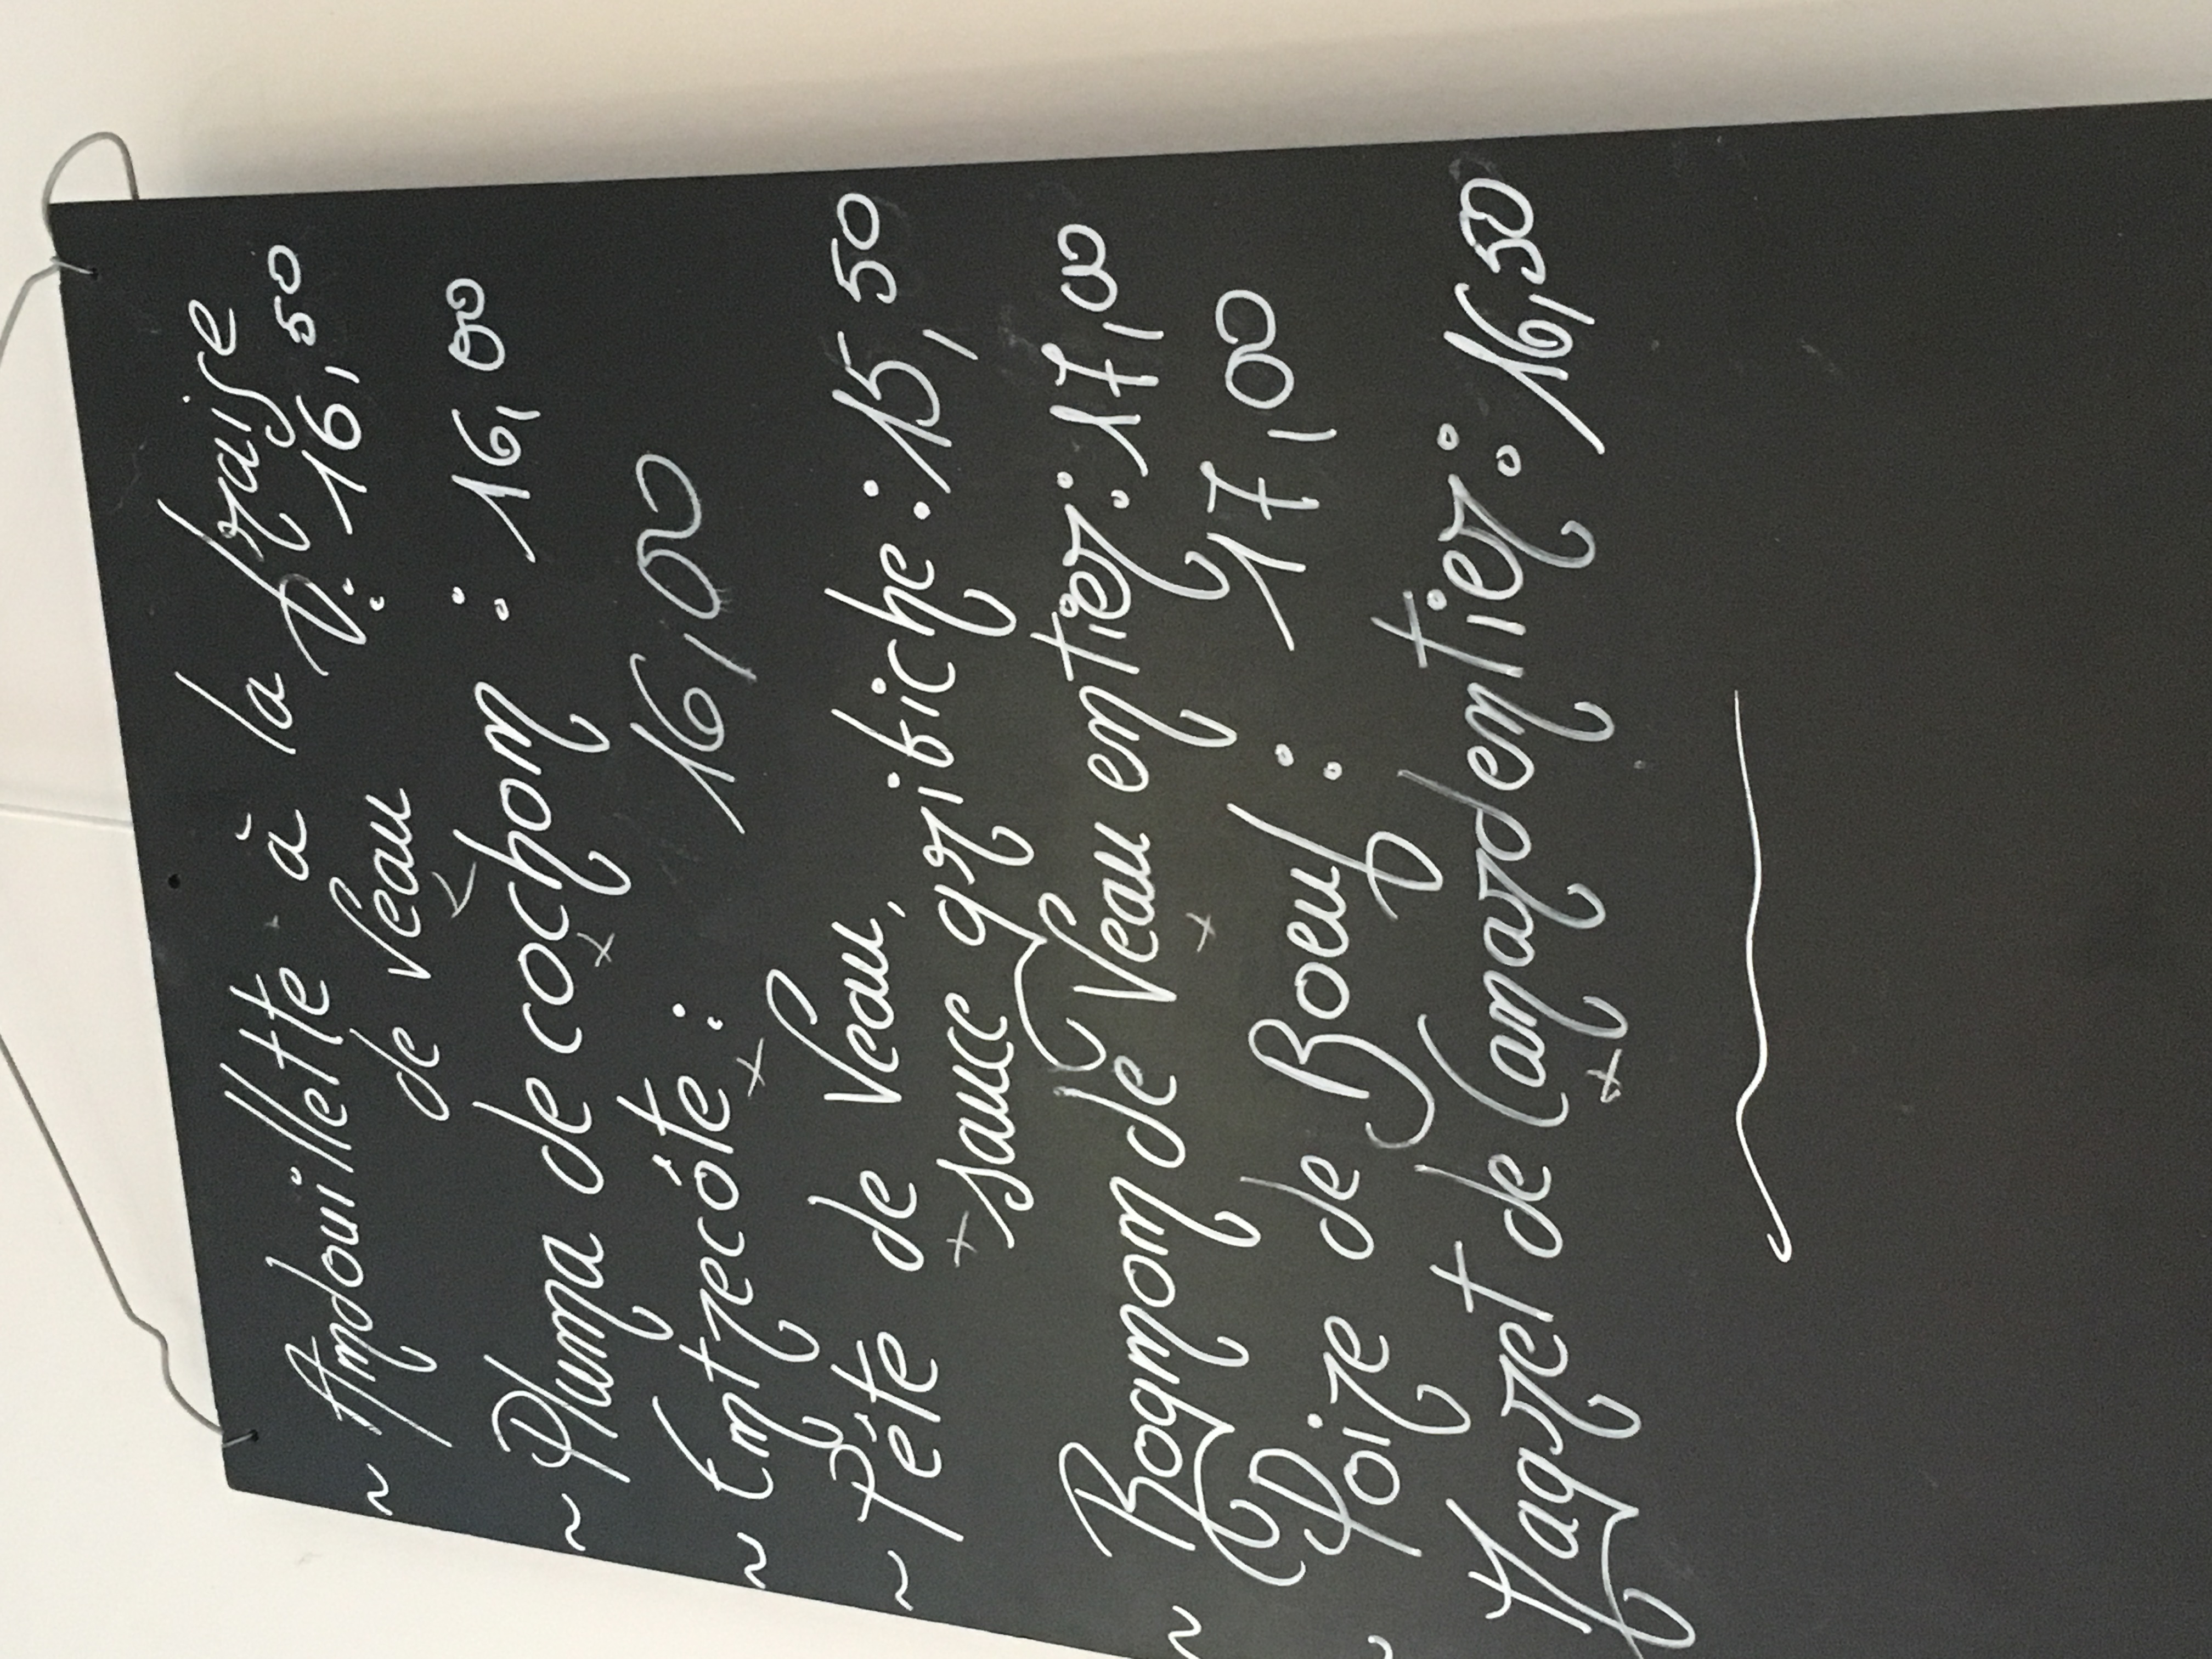 ~ Andouillette à la fraise
de Veau : 16,50
~ Pluma de cochon : 16,00
~ Entrecôte : 16,00
~ Tête de Veau,
sauce gribiche : 15,50
~ Rognon de Veau entier : 17,00
~ Poire de Boeuf : 17,00
Magret de Canard entier : 16,50